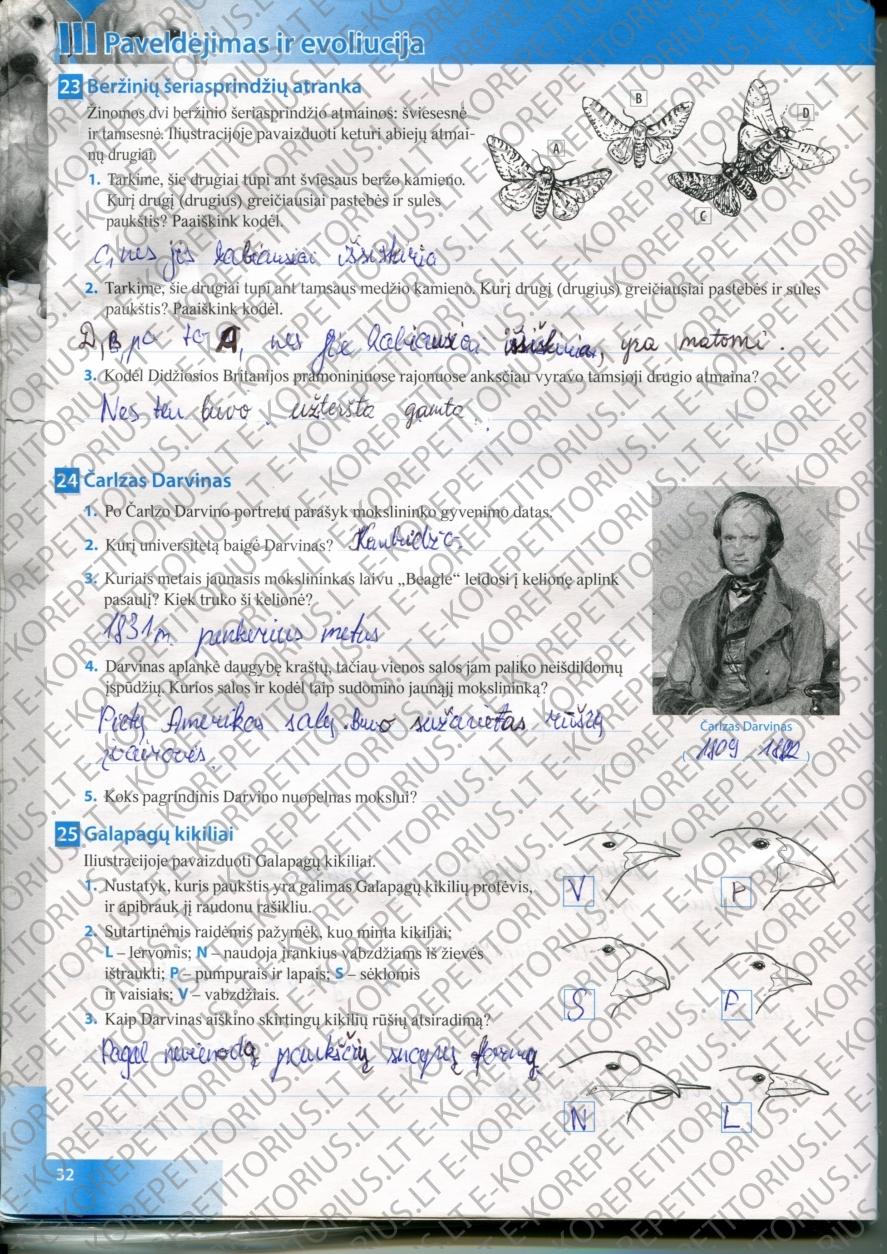 III Paveldėjimas ir evoliucija
23 Beržinių šeriasprindžių atranka
Žinomos dvi beržinio šeriasprindžio atmainos: šviesesnė
ir tamsesnė. Iliustracijoje pavaizduoti keturi abiejų atmai-
nų drugiai.
A
B
C
D
1. Tarkime, šie drugiai tupi ant šviesaus beržo kamieno.
Kurį drugį (drugius) greičiausiai pastebės ir sules
paukštis? Paaiškink kodėl.
C, nes jis labiausiai išsiskiria
2. Tarkime, šie drugiai tupi ant tamsaus medžio kamieno. Kurį drugį (drugius) greičiausiai pastebės ir sules
paukštis? Paaiškink kodėl.
D, B, po to A, nes jie labiausia išsiskiria, yra matomi.
3. Kodėl Didžiosios Britanijos pramoniniuose rajonuose anksčiau vyravo tamsioji drugio atmaina?
Nes ten buvo užteršta gamta.
24 Čarlzas Darvinas
1. Po Čarlzo Darvino portretu parašyk mokslininko gyvenimo datas.
2. Kurį universitetą baigė Darvinas?
3. Kuriais metais jaunasis mokslininkas laivu „Beagle“ leidosi į kelionę aplink
pasaulį? Kiek truko ši kelionė?
1831m. penkerius metus
4. Darvinas aplankė daugybę kraštų, tačiau vienos salos jam paliko neišdildomų
įspūdžių. Kurios salos ir kodėl taip sudomino jaunąjį mokslininką?
Pietų Amerikos salų. Buvo sužavėtas rūšių
įvairovės.
Čarlzas Darvinas
( 1809 1882 )
5. Koks pagrindinis Darvino nuopelnas mokslui?
25 Galapagų kikiliai
Iliustracijoje pavaizduoti Galapagų kikiliai.
1. Nustatyk, kuris paukštis yra galimas Galapagų kikilių protėvis,
ir apibrauk jį raudonu rašikliu.
2. Sutartinėmis raidėmis pažymėk, kuo minta kikiliai:
L – lervomis; N – naudoja įrankius vabzdžiams iš žievės
ištraukti; P – pumpurais ir lapais; S – sėklomis
ir vaisiais; V – vabzdžiais.
3. Kaip Darvinas aiškino skirtingų kikilių rūšių atsiradimą?
Pagal nevienodą paukščių snapų formą.
V
P
S
P
N
L
32
E-KOREPETITORIUS.LT